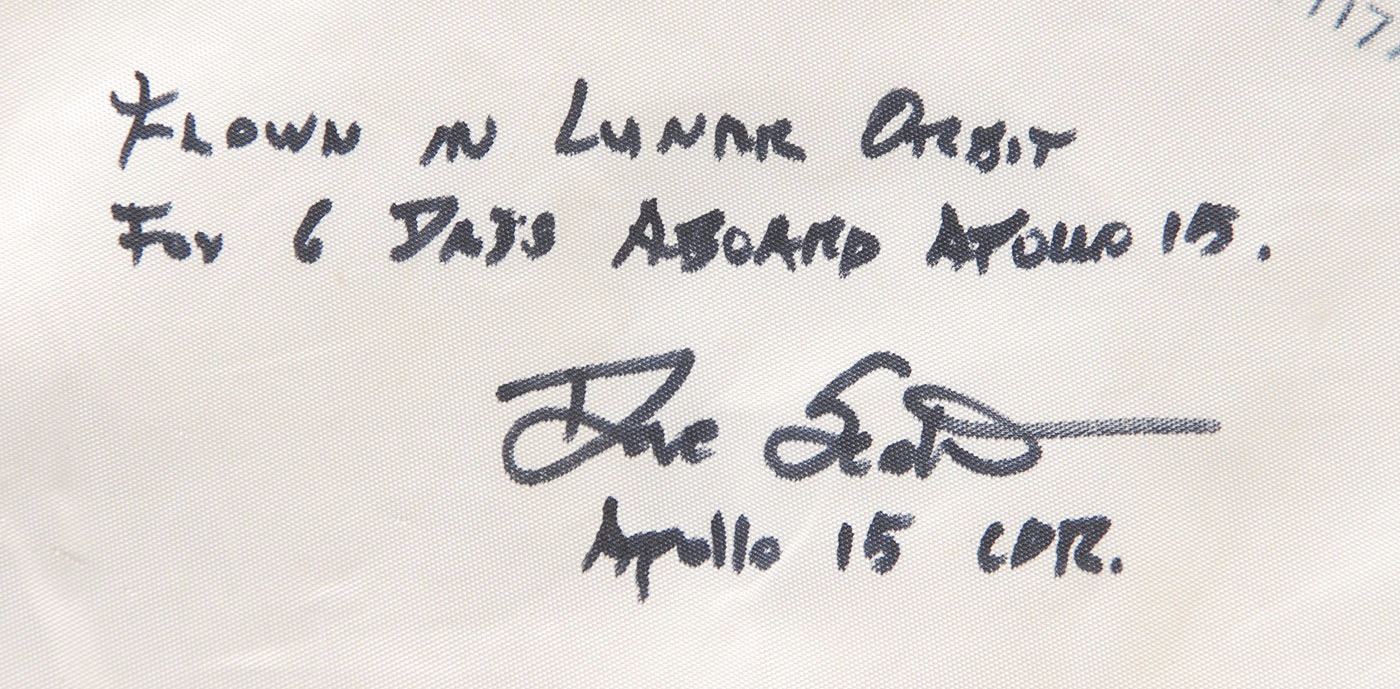 Flown in Lunar Orbit
For 6 Days Aboard Apollo 15.
Dave Scott
Apollo 15 CDR.